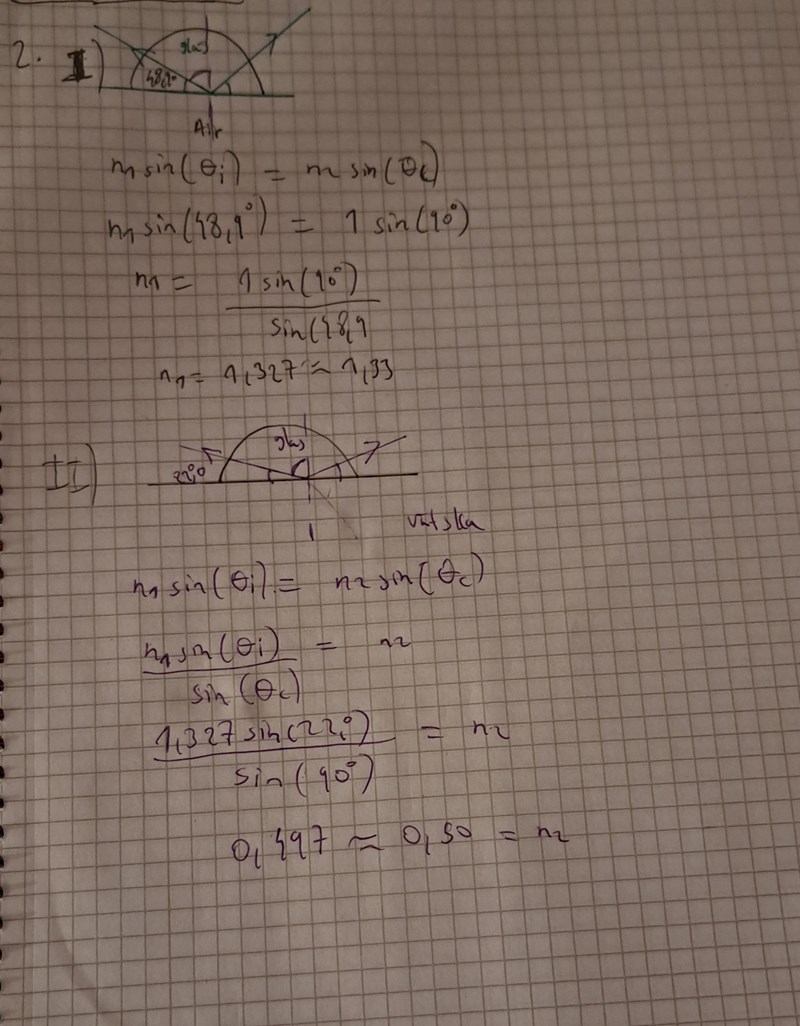 2. I)
glas
48,9°
Air
n1 sin(θi) = n2 sin(θc)
n1 sin(48,9°) = 1 sin(90°)
n1 = 1 sin(90°)
sin(48,9
n1 = 1,327 ≈ 1,33
II)
glas
22,0°
vätska
n1 sin(θi) = n2 sin(θc)
n1 sin(θi) = n2
sin(θc)
1,327 sin(22,0°) = n2
sin(90°)
0,497 ≈ 0,50 = n2